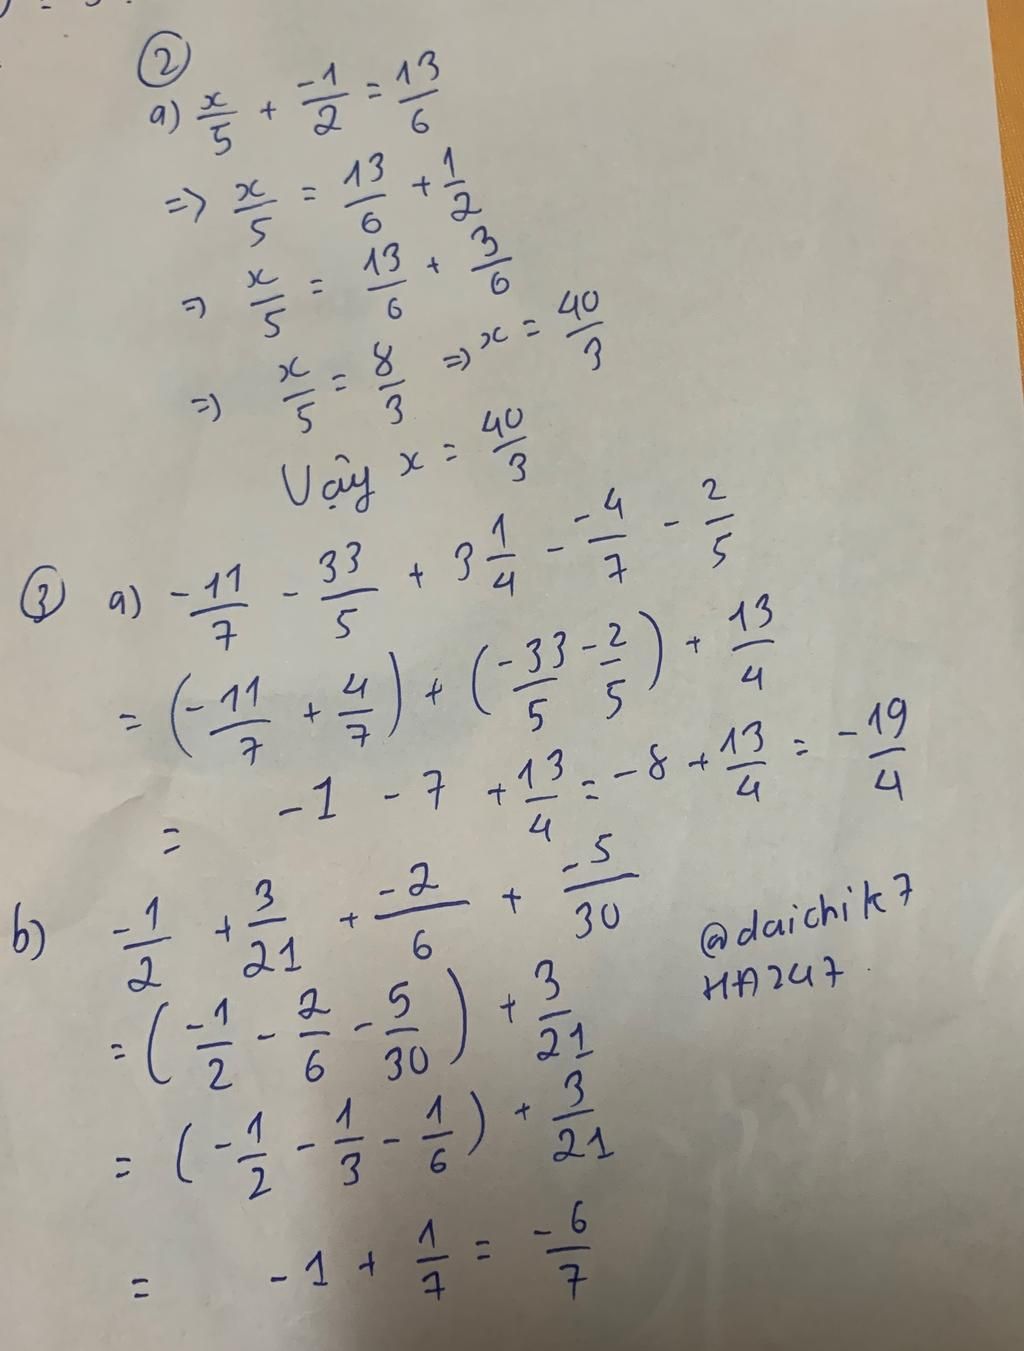 ②
a) x/5 + -1/2 = 13/6
=> x/5 = 13/6 + 1/2
=> x/5 = 13/6 + 3/6
=> x/5 = 8/3 => x = 40/3
Vậy x = 40/3
③ a) -11/7 - 33/5 + 3 1/4 - -4/7 - 2/5
= (-11/7 + 4/7) + (-33/5 - 2/5) + 13/4
= -1 - 7 + 13/4 = -8 + 13/4 = -19/4
b) -1/2 + 3/21 + -2/6 + -5/30
= (-1/2 - 2/6 - 5/30) + 3/21
= (-1/2 - 1/3 - 1/6) + 3/21
= -1 + 1/7 = -6/7
@daichik7
HA247